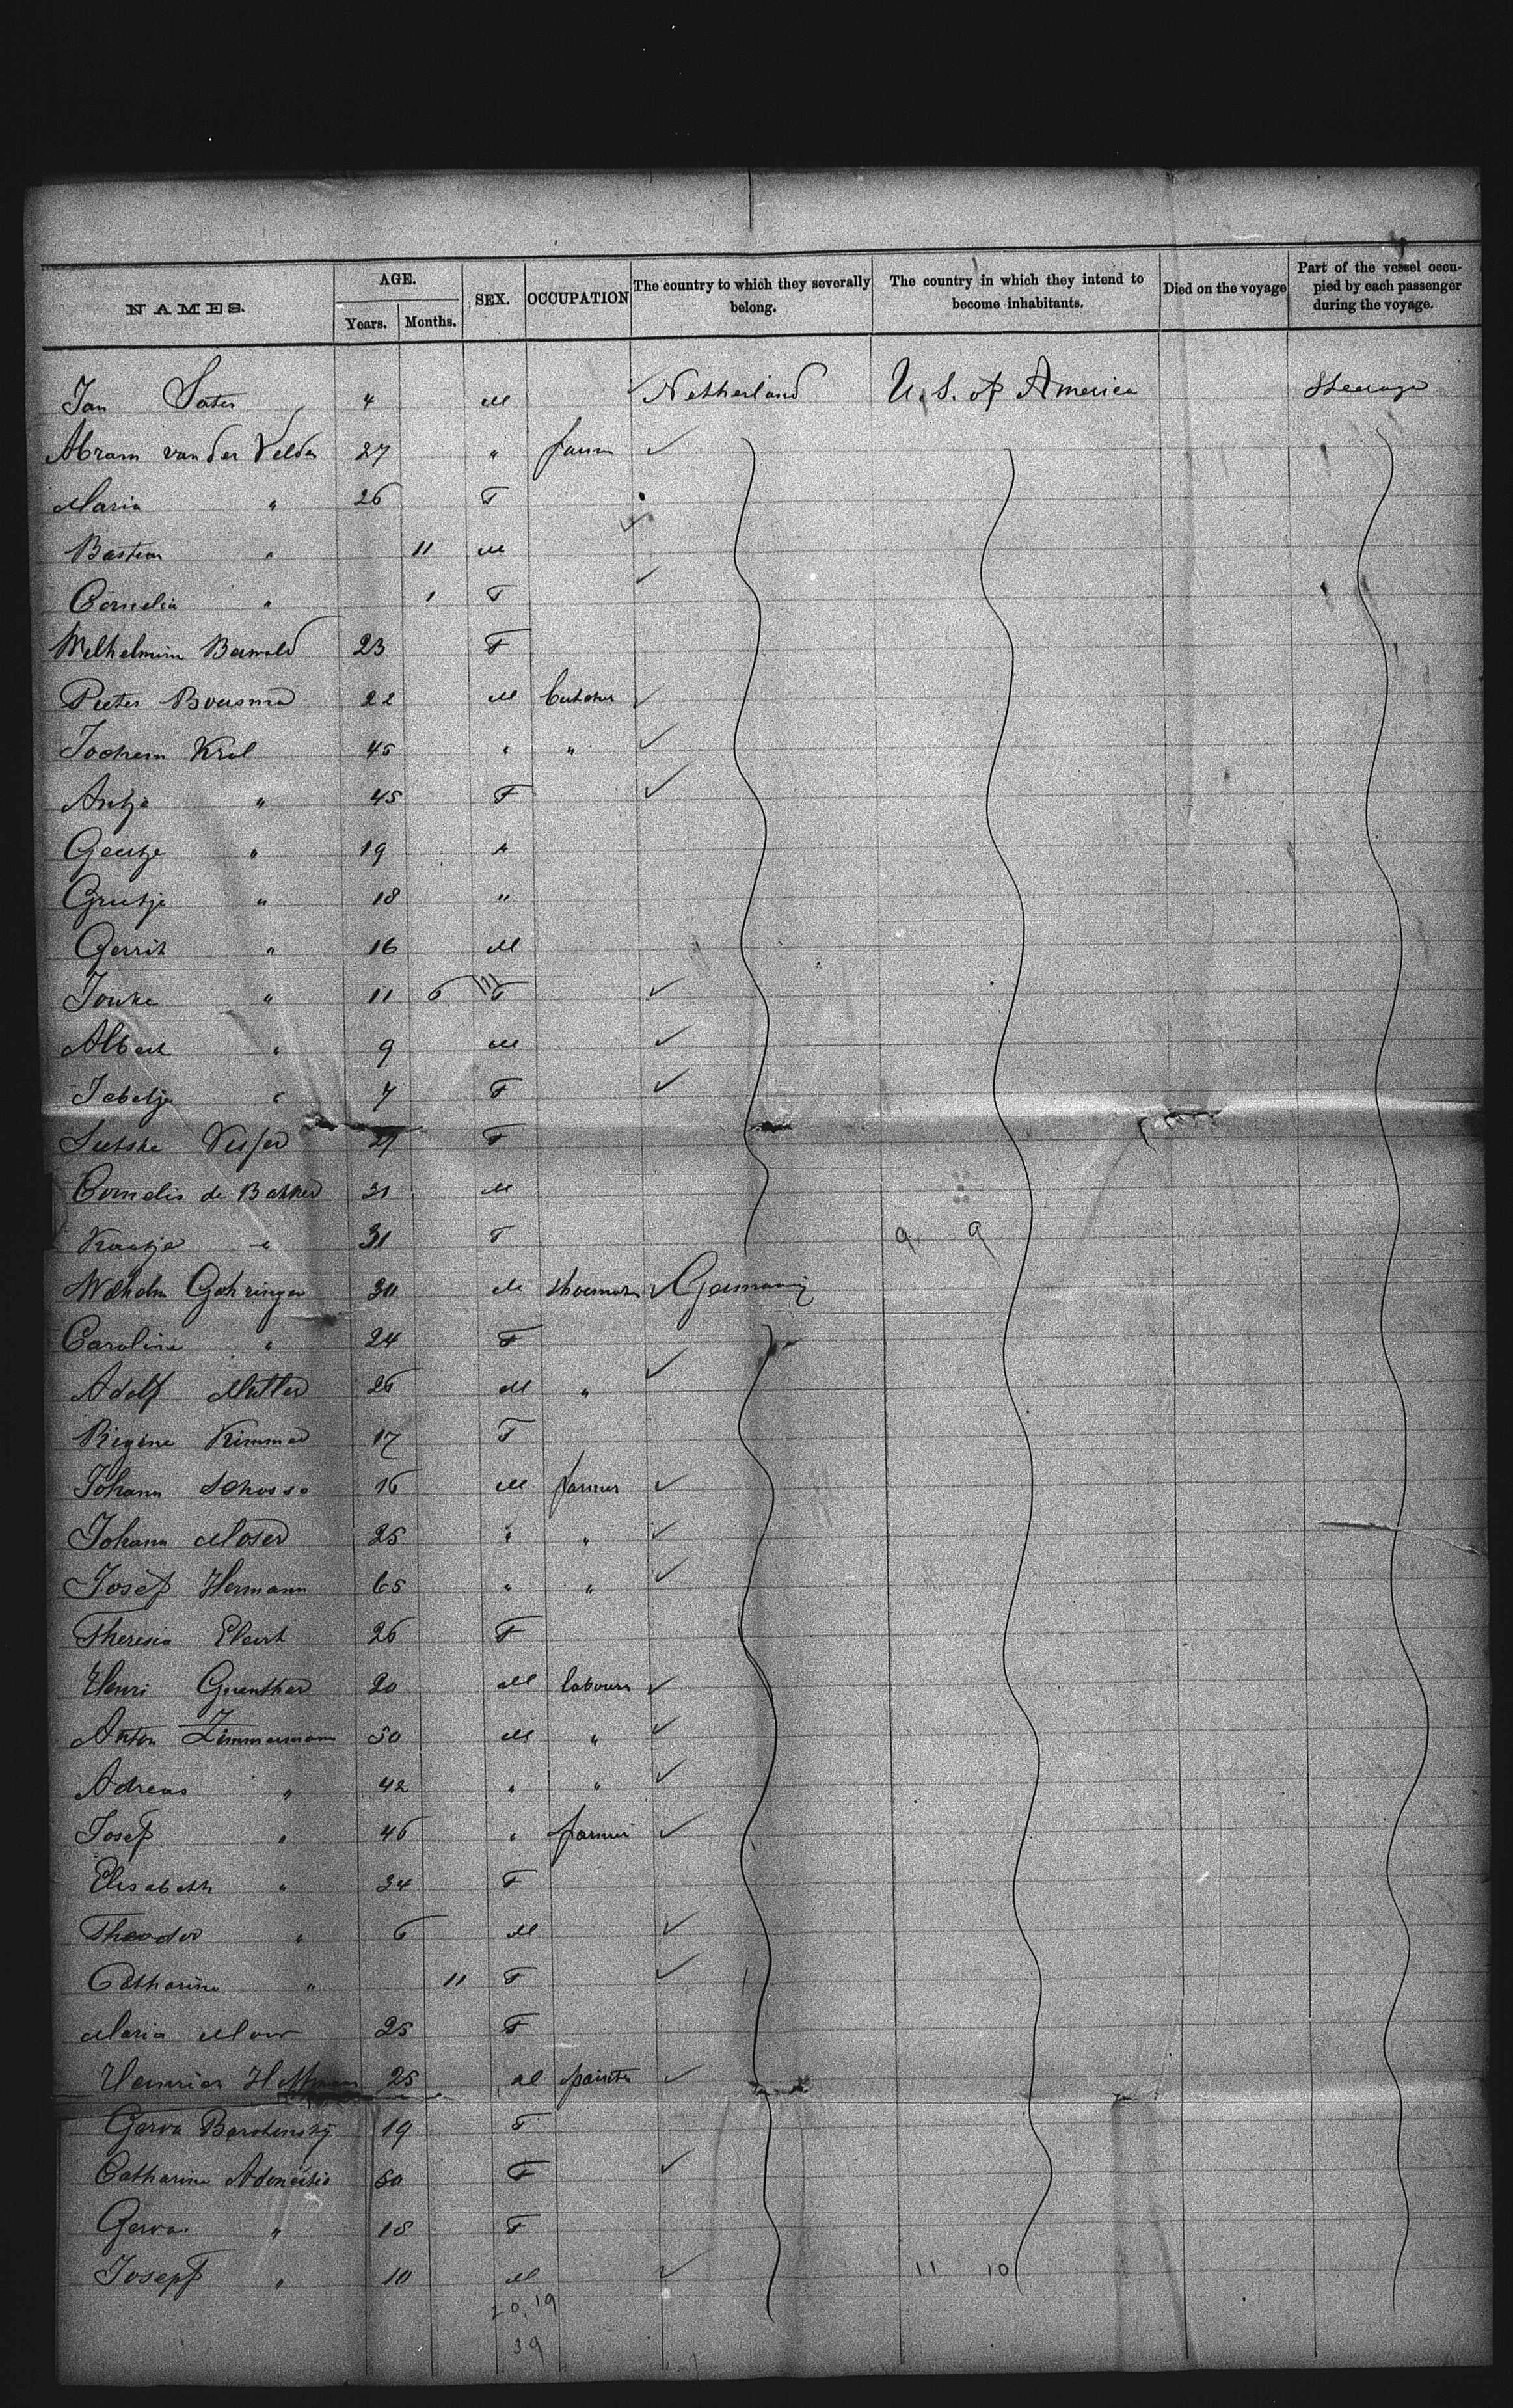 NAMES. AGE. SEX. OCCUPATION The country to which they severally belong. The country in which they intend to become inhabitants. Died on the voyage Part of the vessel occupied by each passenger during the voyage.
Years. Months.
Jan Sater 4 M Netherland U. S. of America Steerage
Abram van der Velden 27 " farm
Maria " 26 F
Bastian " 11 M
Cornelia " 1 F
Welhelmina 23 F
Pieter Bousma 22 M butcher
Jochem Krol 45 " "
Antje " 45 F
Geertje " 19 "
Grietje " 18 "
Gerrit " 16 M
Jouke " 11 6 F
Albert " 9 M
" 7 F
Sietske Visser F
Cornelis de Bakker 31 M
Kaatje " 31 F 9 9
Wilhelm Gohringer 30 M shoemak Germany
Caroline " 24 F
Adolf Muller 26 M "
Regine Kimmer 17 F
Johann 16 M farmer
Johann Moser 25 " "
Josef Hermann 65 " "
Theresia 26 F
Henri Guenther 20 M labourer
Anton Zimmermann 50 M "
Adreas " 42 " "
Josef " 46 " farmer
Elisabeth " 34 F
Theodor " 6 M
Catharina " 11 F
Maria 25 F
Heinrich Hoffmann 25 M painter
Gerva 19 F
Catharina 50 F
Gerva " 18 F
Josepf " 10 M 11 10
20, 19
39